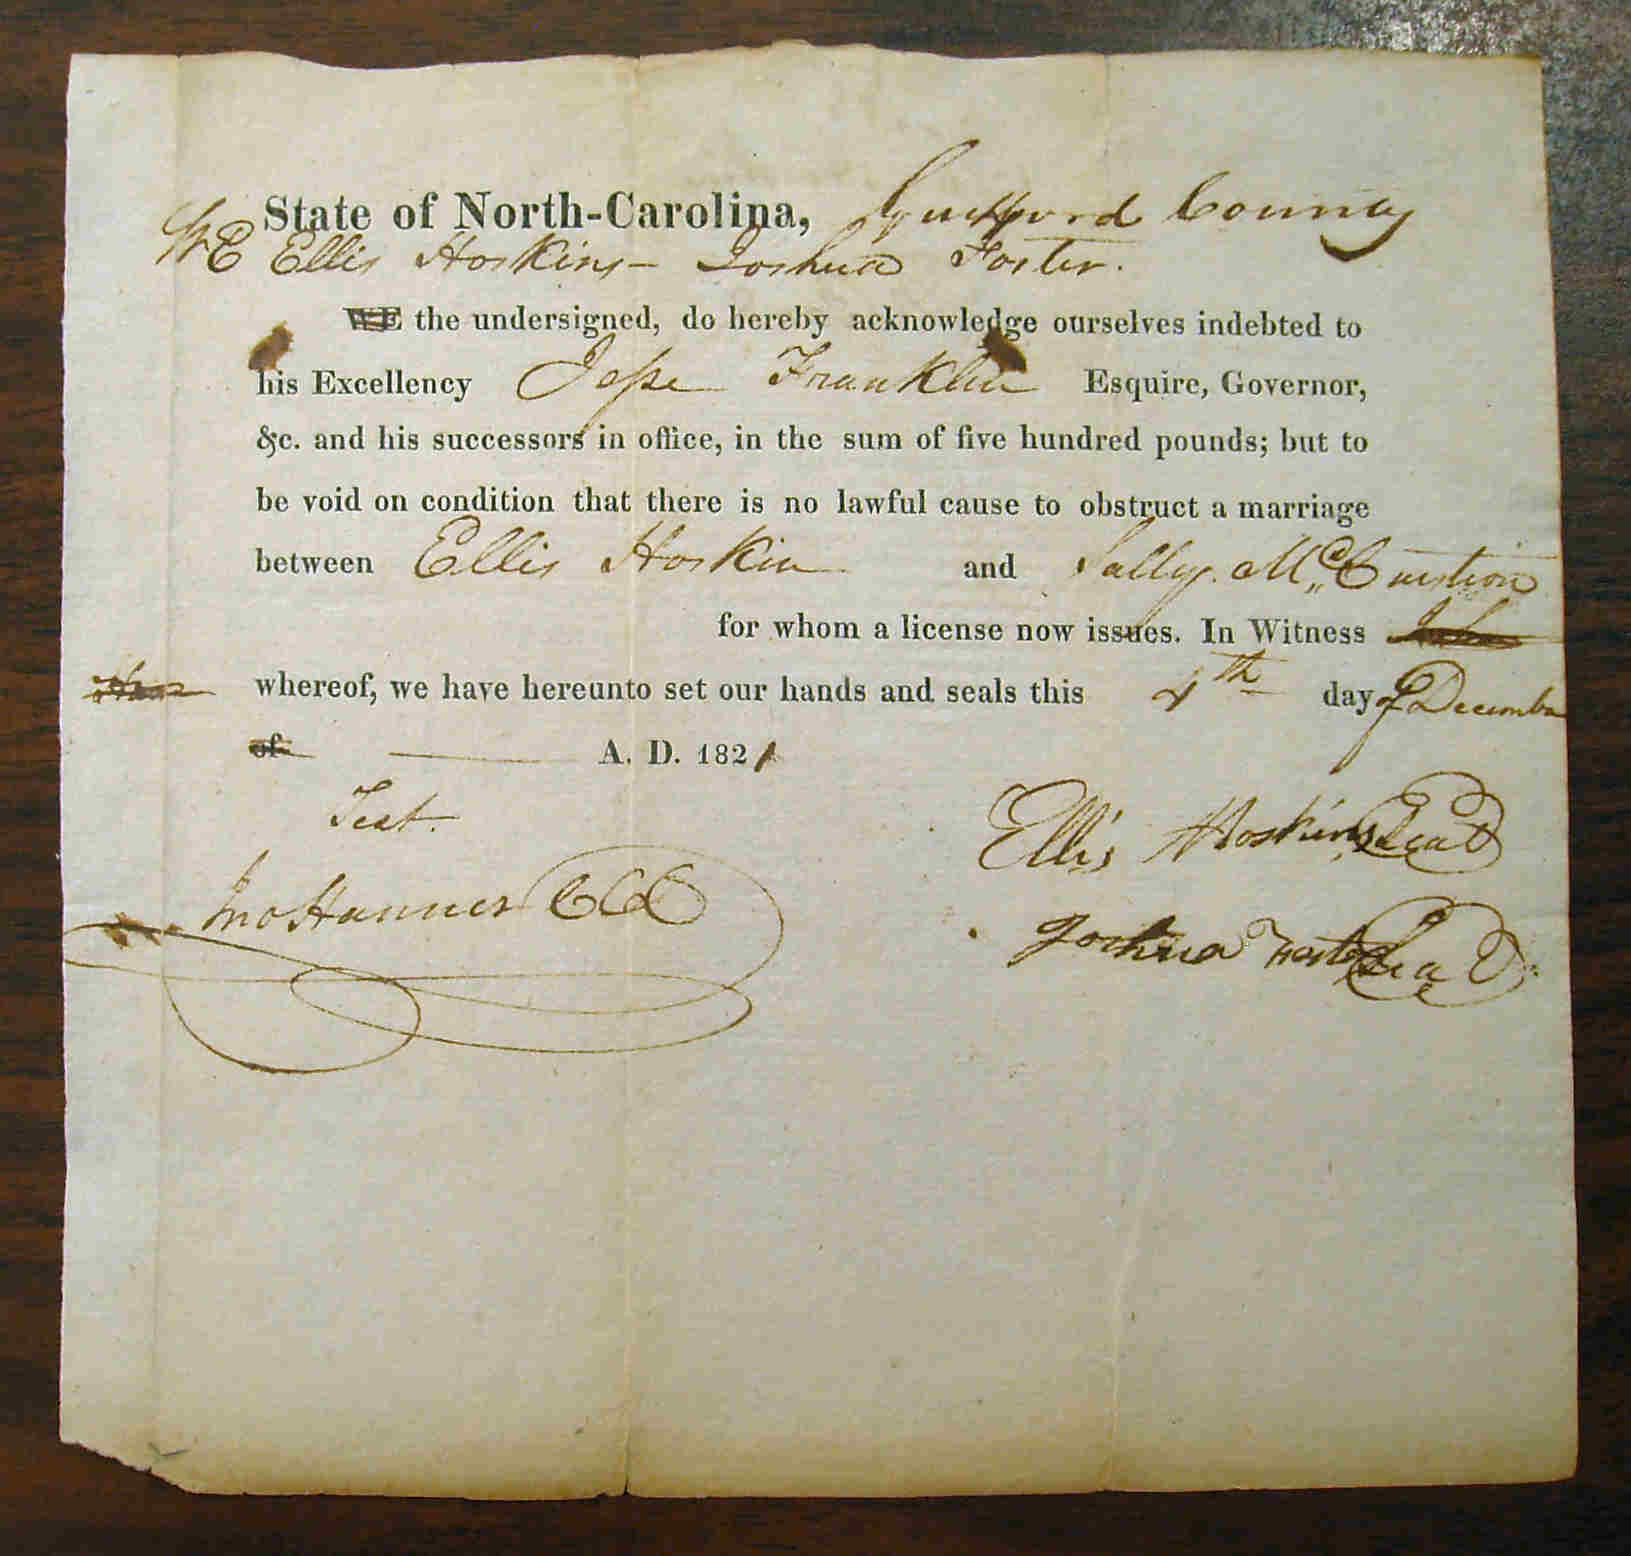 State of North-Carolina, Guilford County
WE Ellis Hoskins – Joshua Foster.
WE the undersigned, do hereby acknowledge ourselves indebted to
his Excellency Jesse Franklin Esquire, Governor,
&c. and his successors in office, in the sum of five hundred pounds; but to
be void on condition that there is no lawful cause to obstruct a marriage
between Ellis Hoskin and Sally McCuistion
for whom a license now issues. In Witness
whereof, we have hereunto set our hands and seals this 4th day of December
of A. D. 1821
Test.
Ellis Hoskins Seal
Jno Hanner CCC
Joshua Foster Seal